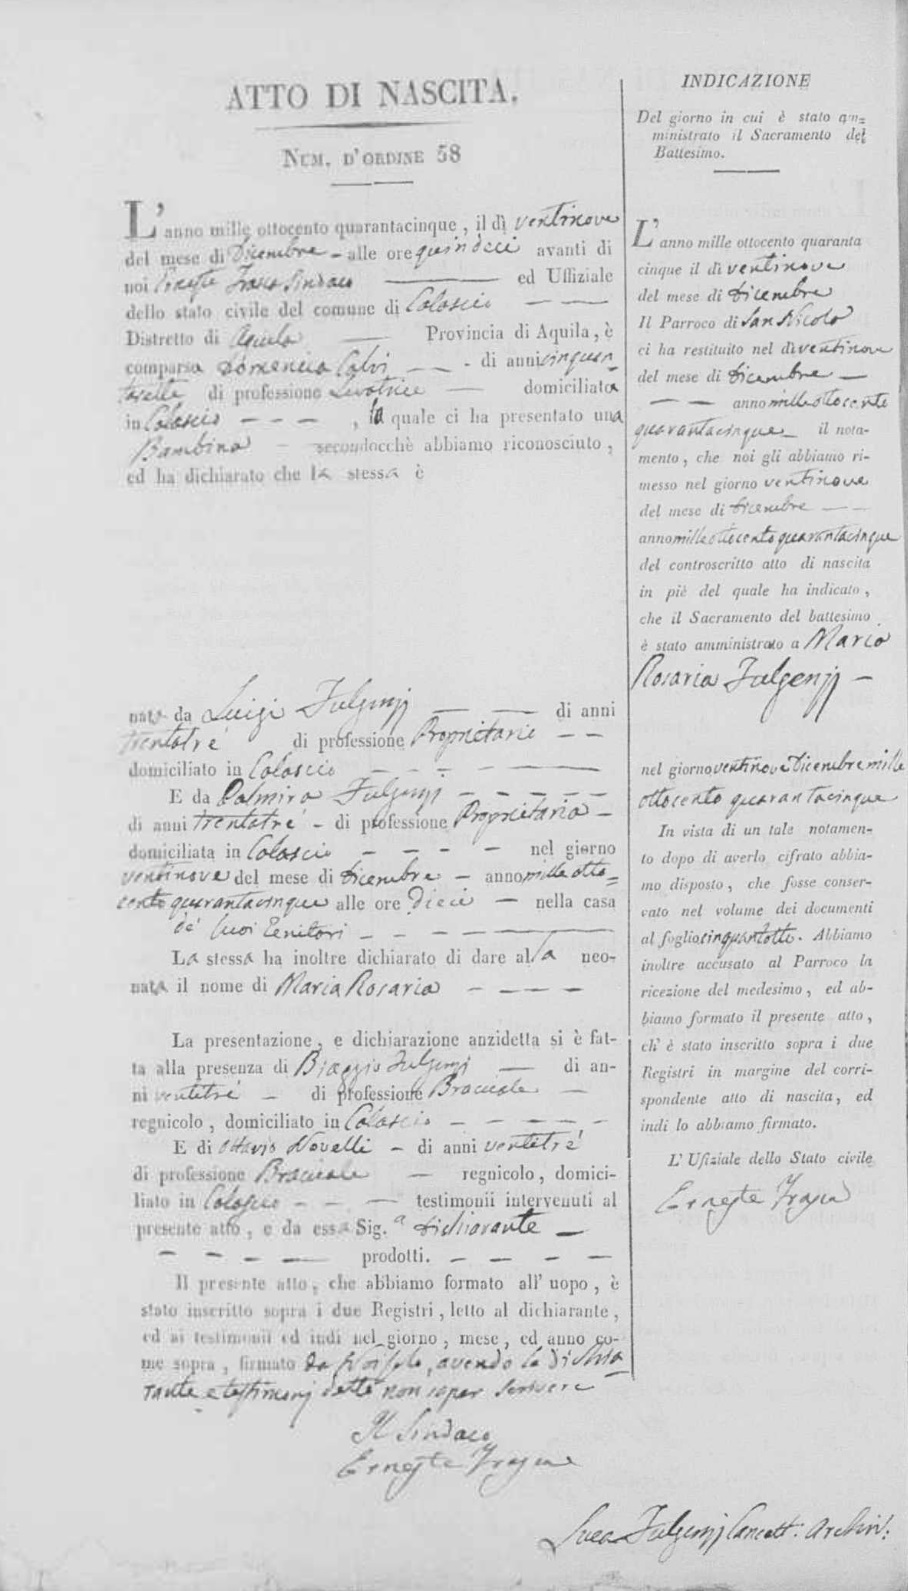 ATTO DI NASCITA.
NUM. D'ORDINE 58
L'anno mille ottocento quarantacinque, il dì ventinove
del mese di Dicembre - alle ore quindeci avanti di
noi Erneste Sindaco ed Uffiziale
dello stato civile del comune di Colascio
Distretto di Aquila Provincia di Aquila, è
comparsa Domenica Calvi - di anni cinquan-
tasette di professione Levatrice domiciliata
in Colascio - - - , la quale ci ha presentato una
Bambina secondocchè abbiamo riconosciuto,
ed ha dichiarato che la stessa è
nata da Luigi Fulgenzj di anni
trentatrè di professione Proprietario - -
domiciliato in Colascio
E da Palmira Fulgenzj - - - - -
di anni trentatrè - di professione Proprietaria -
domiciliata in Colascio - - - - nel giorno
ventinove del mese di Dicembre - anno mille otto=
cento quarantacinque alle ore Dieci - nella casa
de' suoi Genitori - -
La stessa ha inoltre dichiarato di dare alla neo-
nata il nome di Maria Rosaria - - - -
La presentazione, e dichiarazione anzidetta si è fat-
ta alla presenza di Biaggio Fulgenzj - di an-
ni ventitrè - di professione Bracciale -
regnicolo, domiciliato in Colascio - - - - -
E di Ottavio Novelli - di anni ventitrè
di professione Bracciale - regnicolo, domici-
liato in Colascio - - - testimonii intervenuti al
presente atto, e da essa Sig.a dichiarante -
- - - - prodotti. - - - -
Il presente atto, che abbiamo formato all' uopo, è
stato inscritto sopra i due Registri, letto al dichiarante,
ed ai testimonii ed indi nel giorno, mese, ed anno co-
me sopra, firmato da Noi solo, avendo la dichia
rante e testimonj detto non saper scrivere
Il Sindaco
Erneste
Luca Fulgenzj Cancell: Archiv:
INDICAZIONE
Del giorno in cui è stato am=
ministrato il Sacramento del
Battesimo.
L'anno mille ottocento quaranta
cinque il dì ventinove
del mese di Dicembre
Il Parroco di San Nicola
ci ha restituito nel dì ventinove
del mese di Dicembre -
- - anno mille ottocento
quarantacinque il nota-
mento, che noi gli abbiamo ri-
messo nel giorno ventinove
del mese di Dicembre - -
anno mille ottocento quarantacinque
del controscritto atto di nascita
in piè del quale ha indicato,
che il Sacramento del battesimo
è stato amministrato a Maria
Rosaria Fulgenzj -
nel giorno ventinove Dicembre mille
ottocento quarantacinque
In vista di un tale notamen-
to dopo di averlo cifrato abbia-
mo disposto, che fosse conser-
vato nel volume dei documenti
al foglio cinquantotto. Abbiamo
inoltre accusato al Parroco la
ricezione del medesimo, ed ab-
biamo formato il presente atto,
ch' è stato inscritto sopra i due
Registri in margine del corri-
spondente atto di nascita, ed
indi lo abbiamo firmato.
L' Ufiziale dello Stato civile
Erneste